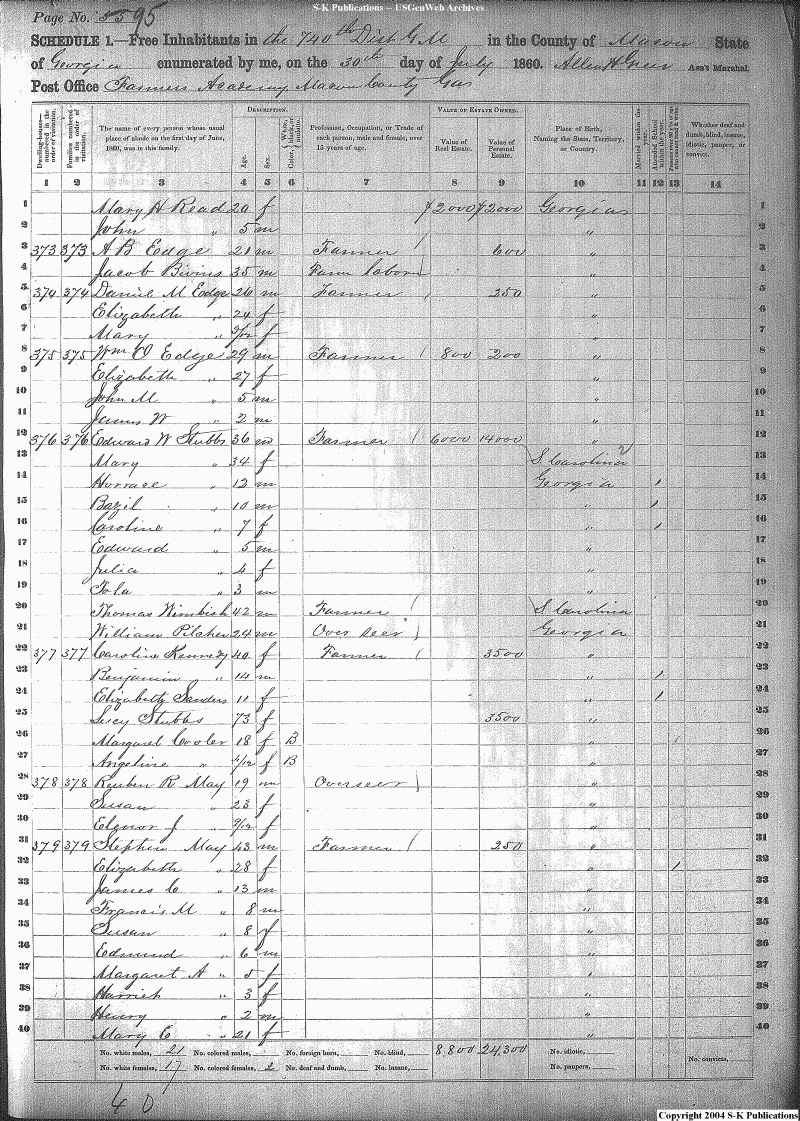 S-K Publications – USGenWeb Archives
Page No. 55 95
SCHEDULE 1.—Free Inhabitants in the 740th Dist G.M in the County of Macon State
of Georgia enumerated by me, on the 30th day of July 1860. Allen H Greer Ass't Marshal.
Post Office Farmers Academy Macon County Gas
DESCRIPTION. VALUE OF ESTATE OWNED.
Dwelling-houses—numbered in the order of visitation. Families numbered in the order of visitation. The name of every person whose usual place of abode on the first day of June, 1860, was in this family. Age. Sex. Color, {White, black, or mulatto. Profession, Occupation, or Trade of each person, male and female, over 15 years of age. Value of Real Estate. Value of Personal Estate. Place of Birth, Naming the State, Territory, or Country. Married within the year. Attended School within the year. Persons over 20 y'rs of age who cannot read & write. Whether deaf and dumb, blind, insane, idiotic, pauper, or convict.
1 2 3 4 5 6 7 8 9 10 11 12 13 14
1 Mary H Read 20 f 2000 2000 Georgia 1
2 John " 5 m " 2
3 373 373 A B Edge 21 m Farmer 600 " 3
4 Jacob Bivins 35 m Farm labor " 4
5 374 374 Daniel M Edge 26 m Farmer 350 " 5
6 Elizabeth " 24 f " 6
7 Mary " 9/12 f " 7
8 375 375 Wm O Edge 29 m Farmer 800 200 " 8
9 Elizabeth " 27 f " 9
10 John M " 5 m " 10
11 James W " 2 m " 11
12 376 376 Edward W Stubbs 36 m Farmer 6000 14000 " 12
13 Mary " 34 f S. Carolina 13
14 Horrace " 12 m Georgia 1 14
15 Bazil " 10 m " 1 15
16 Caroline " 7 f " 1 16
17 Edward " 5 m " 17
18 Julia " 4 f " 18
19 Tola " 3 m " 19
20 Thomas Wimbish 42 m Farmer S. Carolina 20
21 William Pilcher 24 m Over seer Georgia 21
22 377 377 Caroline Kennedy 40 f Farmer 3500 " 22
23 Benjamin " 14 m " 1 23
24 Elizabeth Sanders 11 f " 1 24
25 Lucy Stubbs 73 f 3500 " 25
26 Margaret Cooler 18 f B " 1 26
27 Angeline " 4/12 f B " 27
28 378 378 Reuben R May 19 m Overseer " 28
29 Susan " 23 f " 29
30 Elgnor J " 9/12 f " 30
31 379 379 Stephen May 43 m Farmer 250 " 31
32 Elizabeth " 28 f " 1 32
33 James C " 13 m " 33
34 Francis M " 8 m " 34
35 Susan " 8 f " 35
36 Edmund " 6 m " 36
37 Margaret A " 5 f " 37
38 Harriet " 3 f " 38
39 Henry " 2 m " 39
40 Mary C " 21 f " 40
No. white males, 21 No. colored males, No. foreign born, No. blind, 8,800 24,300 No. idiotic, No. convicts,
No. white females, 17 No. colored females, 2 No. deaf and dumb, No. insane, No. paupers,
40
Copyright 2004 S-K Publications